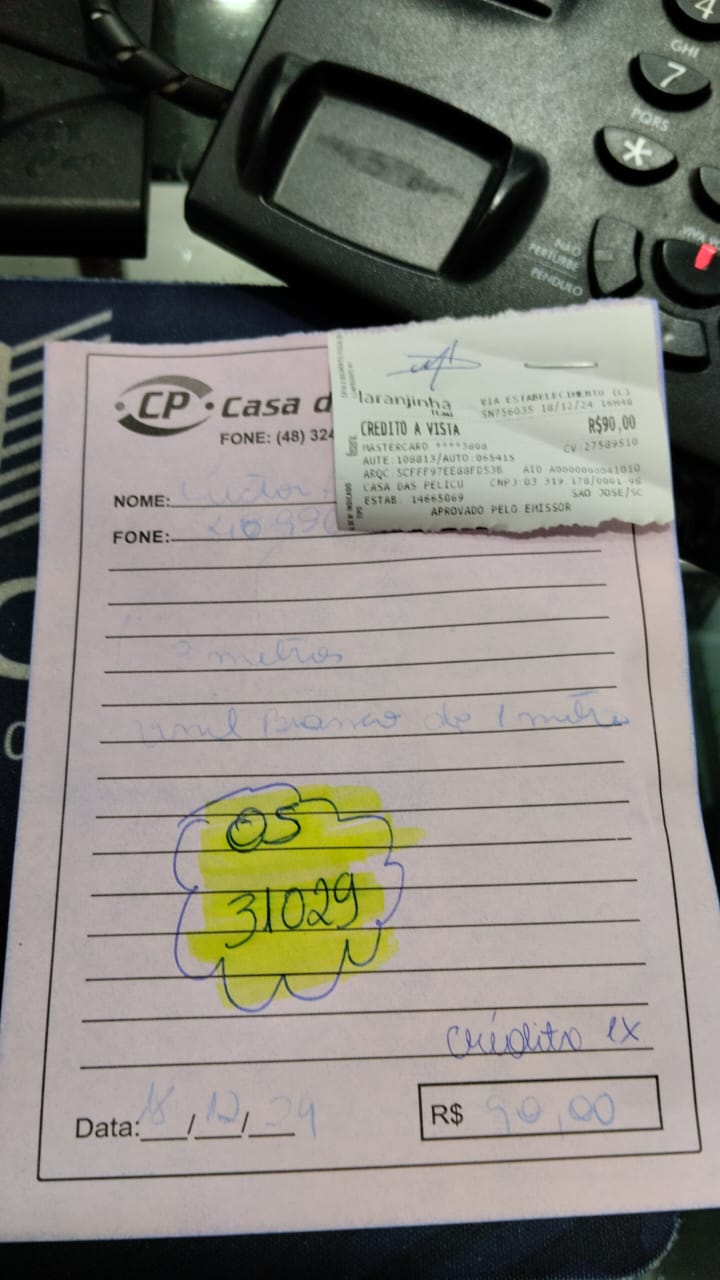 4
GHI
7
PQRS
*
NÃO
PERTURBE
PÊNDULO
VIVA
CP Casa d
FONE: (48) 324
laranjinha
VIA ESTABELECIMENTO
SN756035 18/12/24 16H48
CREDITO A VISTA R$90,00
MASTERCARD CV:27589510
AUTE:109813/AUTO:065415
ARQC:5CFFF97EE88FD53B AID A0000000041010
CASA DAS PELICU CNPJ:03.319.178/0001-98
ESTAB. 14665069 SAO JOSE/SC
APROVADO PELO EMISSOR
NOME:
FONE:
metros
Branco de 1 metro
OS
31029
crédito 1x
Data: 18/12/24 R$ 90,00